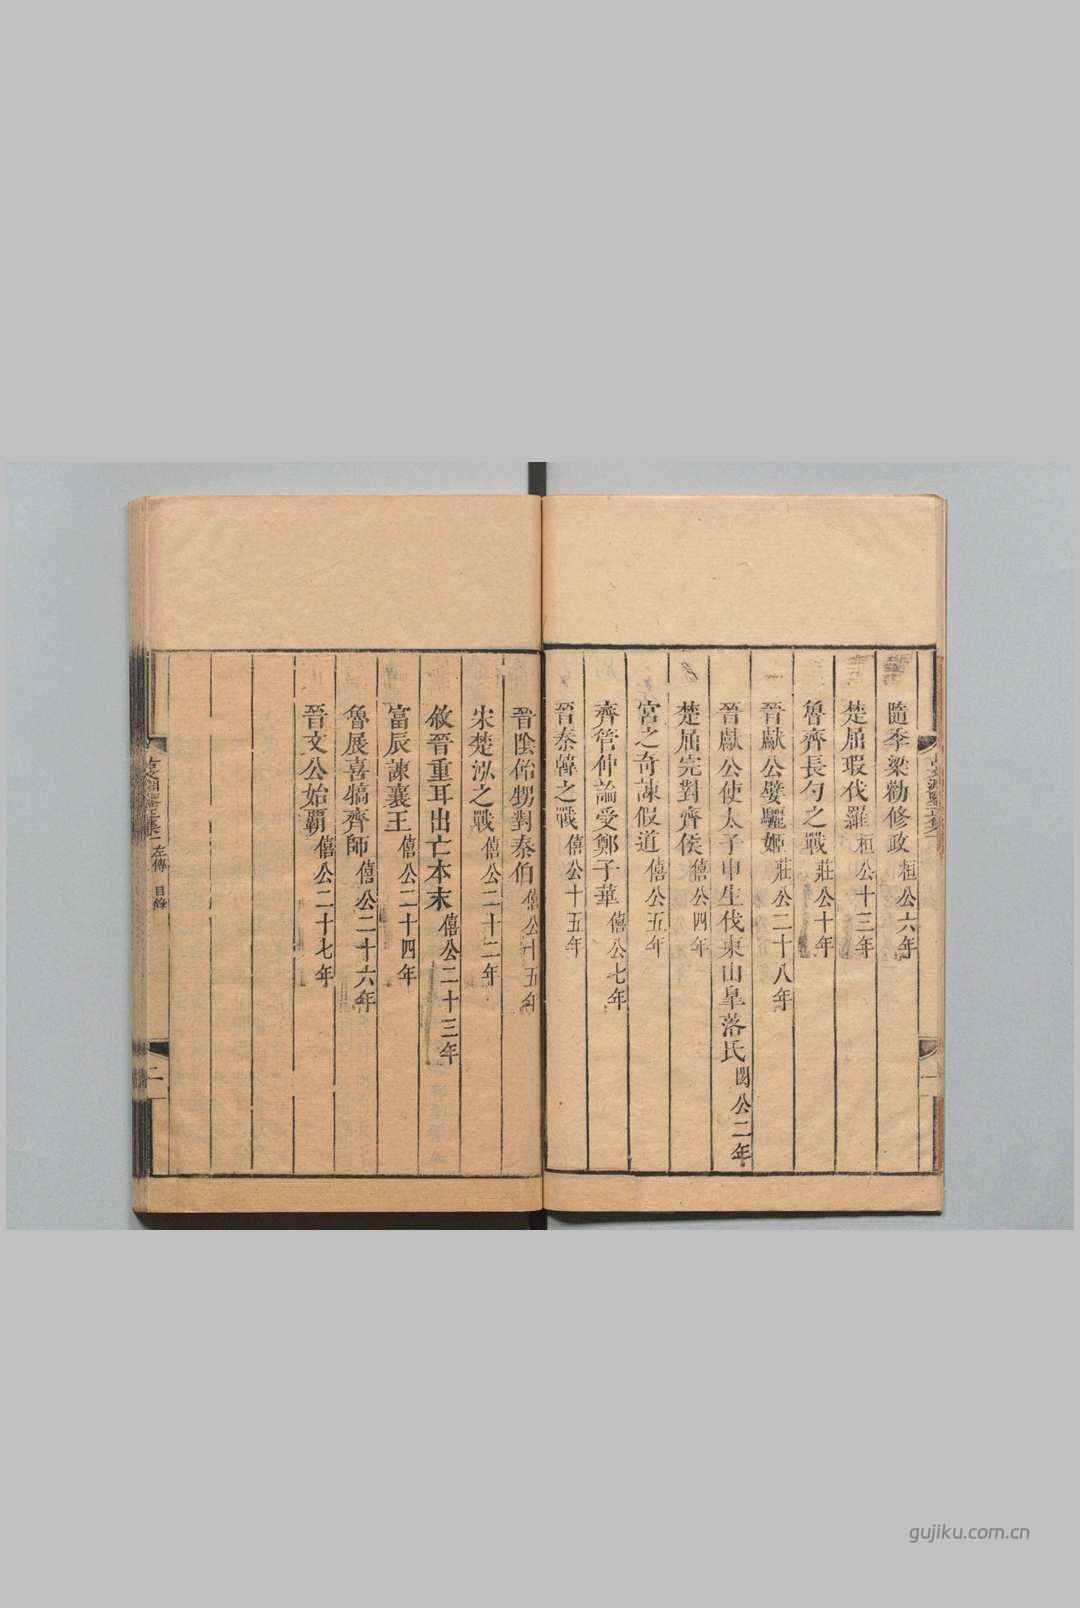 隨季梁勸修政 桓公六年
楚屈瑕伐羅 桓公十三年
魯齊長勺之戰 莊公十年
晉獻公嬖驪姬 莊公二十八年
晉獻公使太子申生伐東山皐落氏 閔公二年
楚屈完對齊侯 僖公四年
宮之奇諫假道 僖公五年
齊管仲論受鄭子華 僖公七年
晉秦韓之戰 僖公十五年
晉陰飴甥對秦伯 僖公十五年
宋楚泓之戰 僖公二十二年
敘晉重耳出亡本末 僖公二十三年
富辰諫襄王 僖公二十四年
魯展喜犒齊師 僖公二十六年
晉文公始霸 僖公二十七年
古文淵鑒正集 左傳 目錄
二
gujiku.com.cn